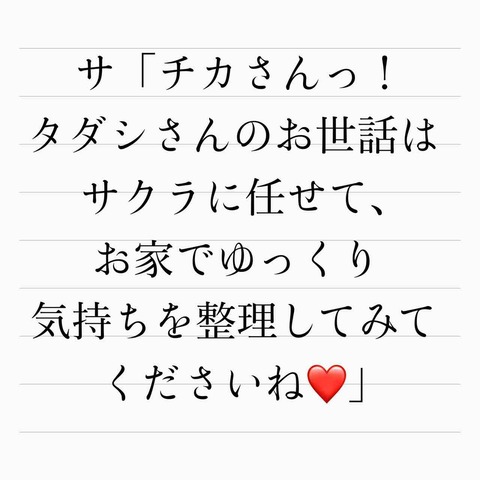 サ「チカさんっ！
タダシさんのお世話は
サクラに任せて、
お家でゆっくり
気持ちを整理してみて
くださいね❤️」